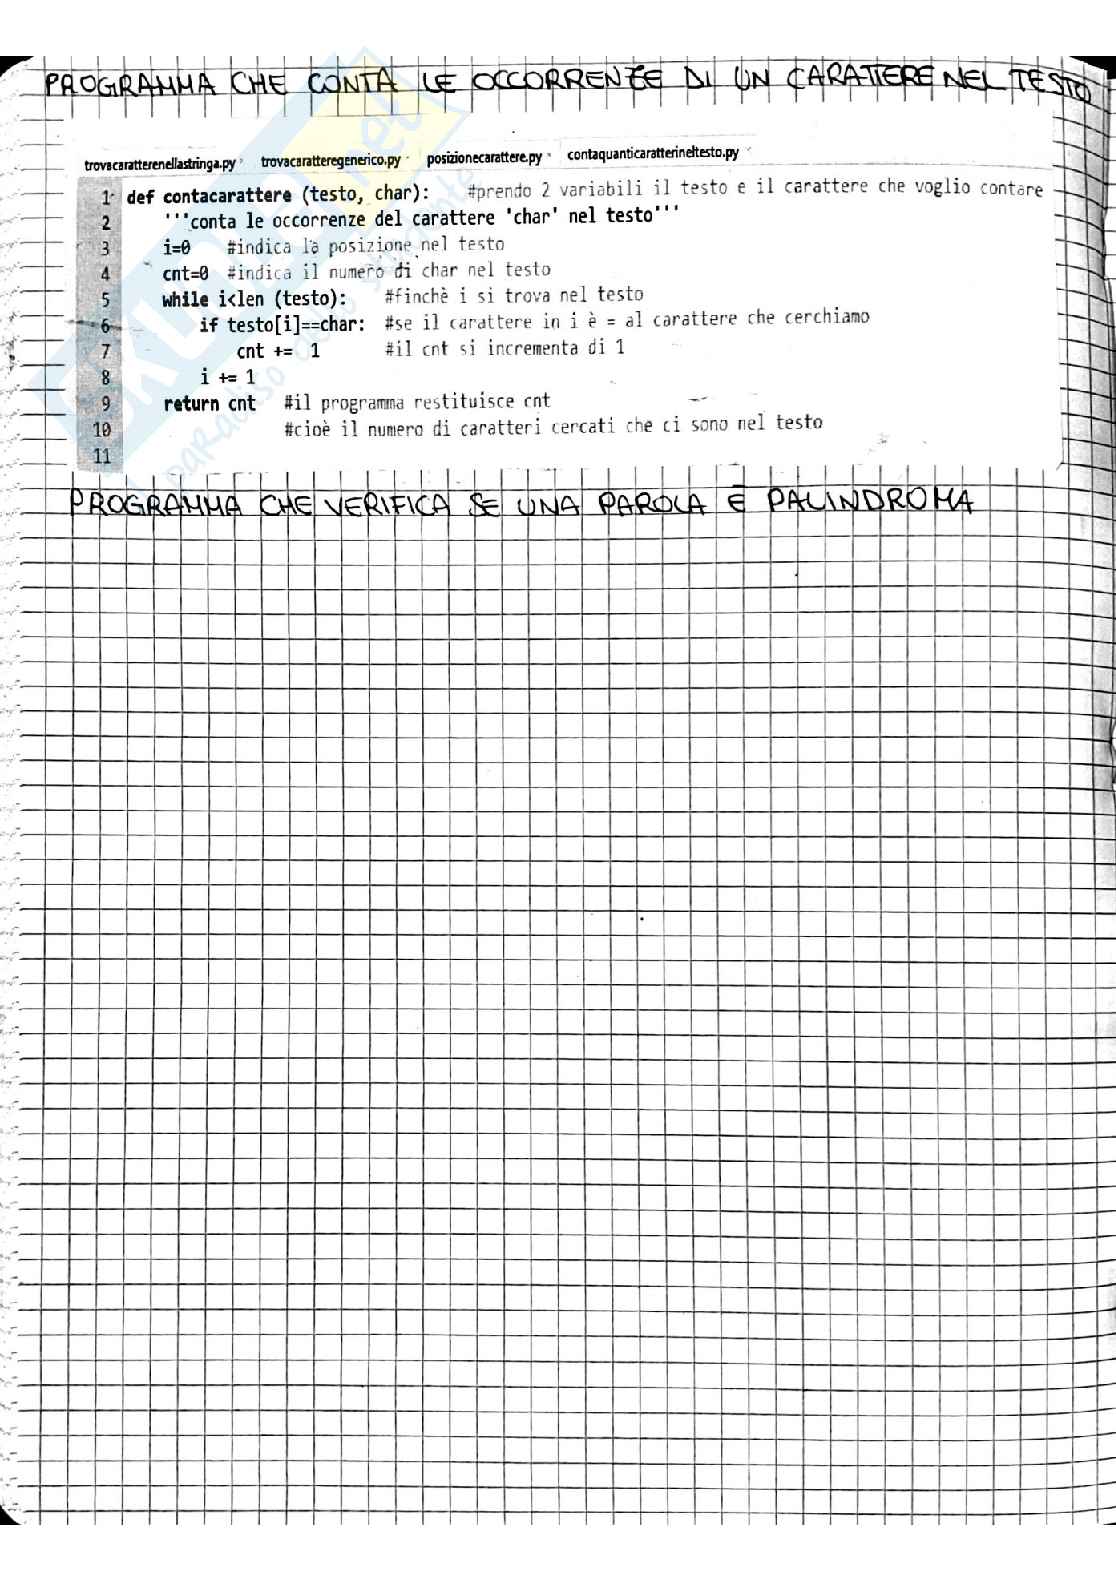 PROGRAMMA CHE CONTA LE OCCORRENZE DI UN CARATTERE NEL TESTO
trovacaratterenellastringa.py trovacaratteregenerico.py posizionecarattere.py contaquanticaratterineltesto.py
1 def contacarattere (testo, char): #prendo 2 variabili il testo e il carattere che voglio contare
2 '''conta le occorrenze del carattere 'char' nel testo'''
3 i=0 #indica la posizione nel testo
4 cnt=0 #indica il numero di char nel testo
5 while i<len (testo): #finchè i si trova nel testo
6 if testo[i]==char: #se il carattere in i è = al carattere che cerchiamo
7 cnt += 1 #il cnt si incrementa di 1
8 i += 1
9 return cnt #il programma restituisce cnt
10 #cioè il numero di caratteri cercati che ci sono nel testo
11
PROGRAMMA CHE VERIFICA SE UNA PAROLA È PALINDROMA